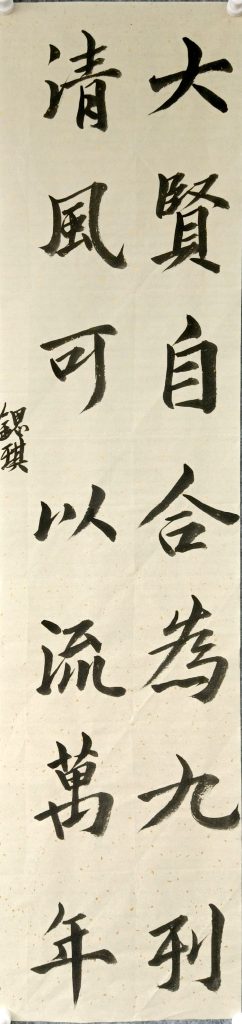 大賢自合為九刊
清風可以流萬年
鍶琪